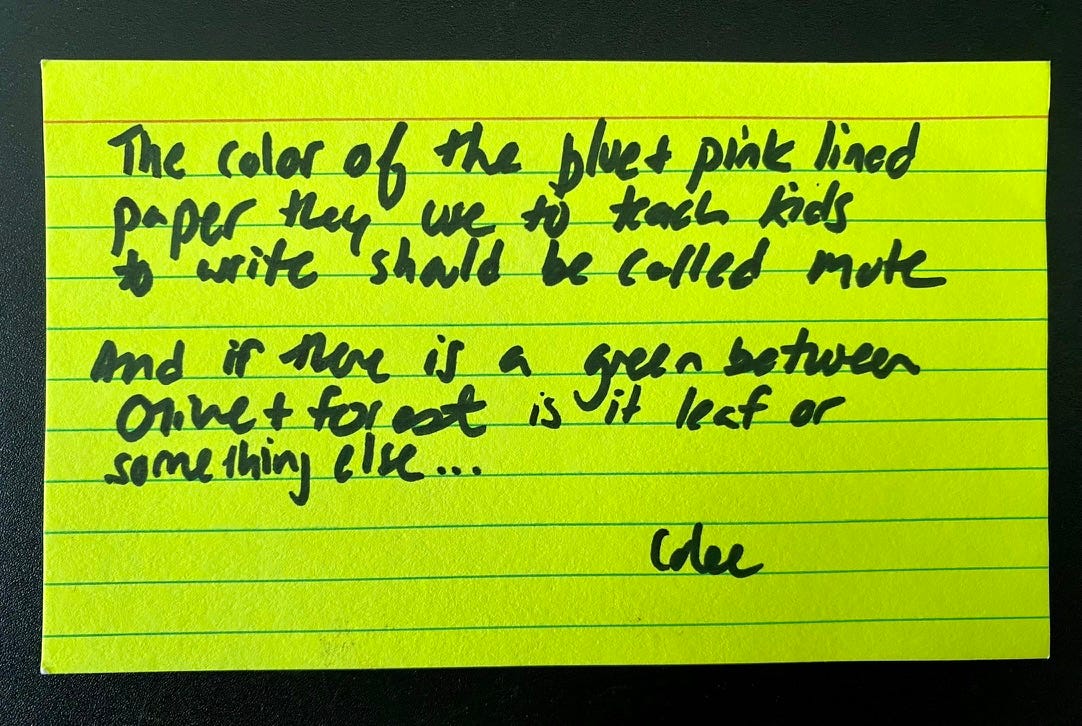 The color of the blue + pink lined
paper they use to teach kids
to write should be called mute
And if there is a green between
Olive + forest is it leaf or
something else...
Colee